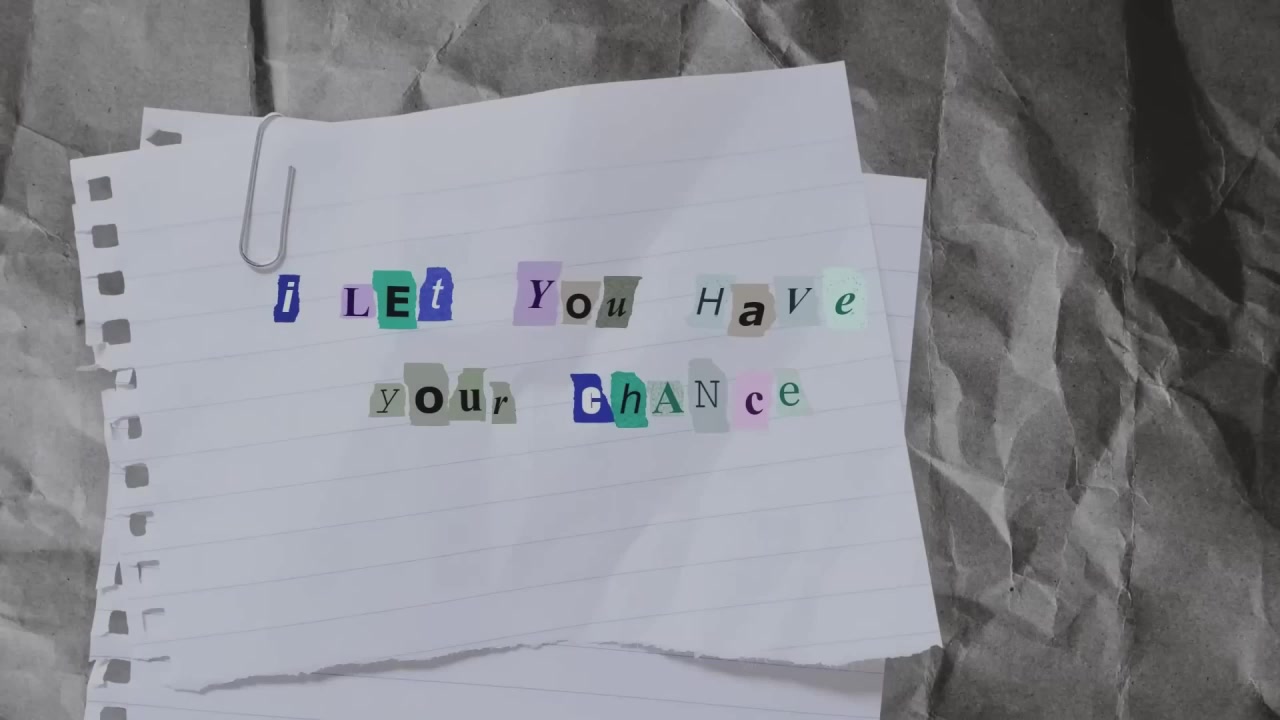 i LEt You HaVe
your ChANce